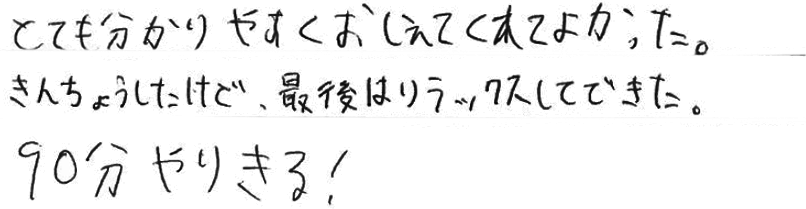 とても分かりやすくおしえてくれてよかった。
きんちょうしたけど、最後はリラックスしてできた。
90分やりきる!